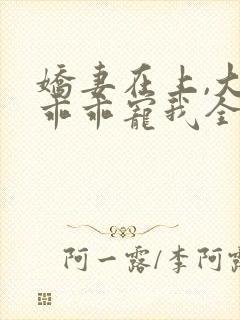 嬌妻在上,大
乖乖寵我全
阿一露/李阿露